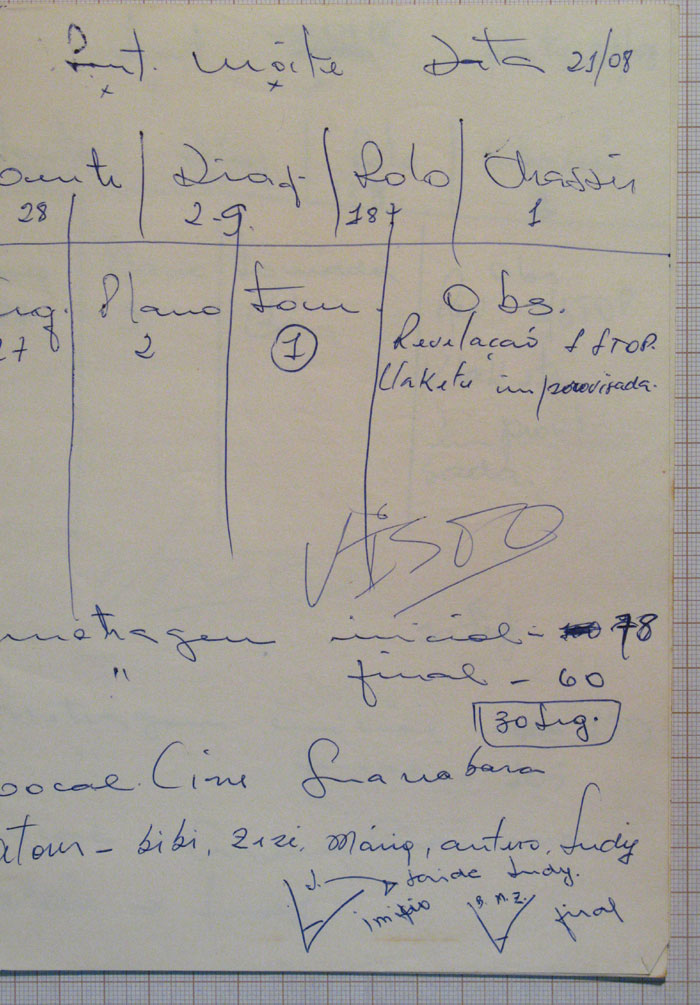 Int. Noite Data 21/08
Diag. Rolo Chassir
28 2-9 187 1
Plano Som Obs.
27 2 1 Revelação S STOP.
Claquete improvisada.
VISTO
metragem inicial - 78
" final - 60
30 Seg.
Local. Cine Guanabara
atores - bibi, Zezé, Mário, antero, Judy
J. saída Judy.
início B. M. Z. final